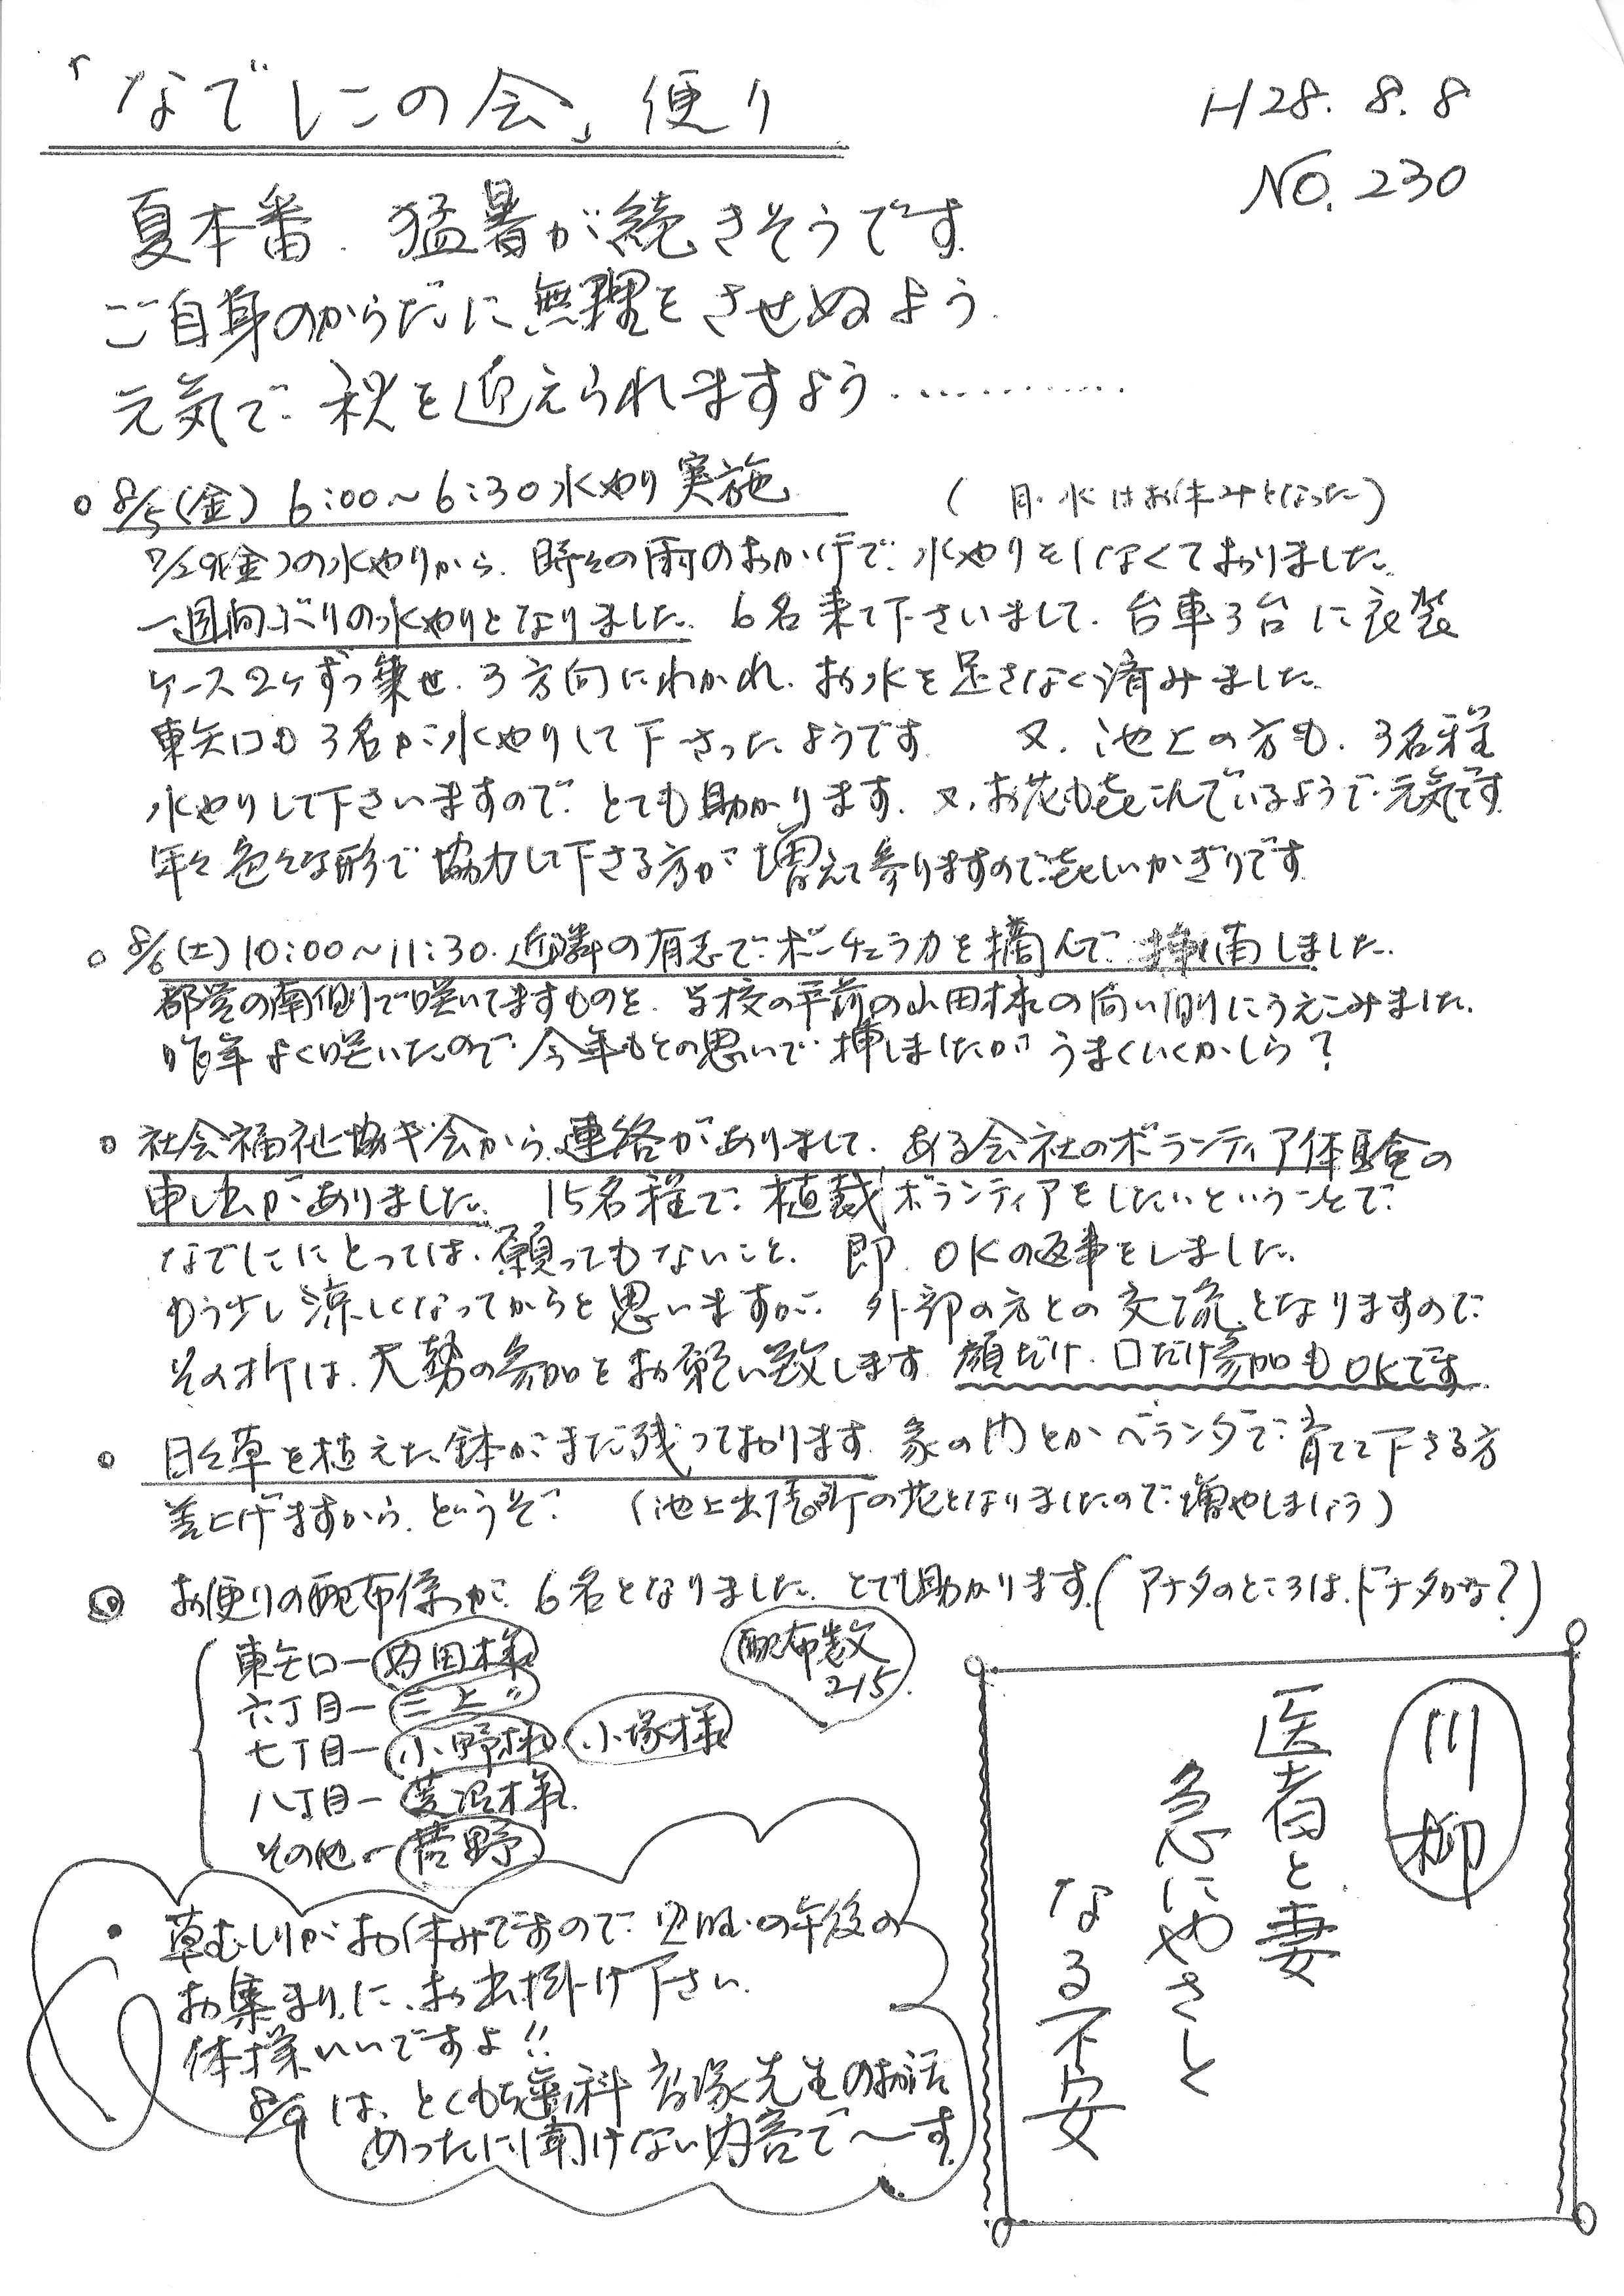 「なでしこの会」便り
H28.8.8
NO.230
夏本番、猛暑が続きそうです
ご自身のからだに無理をさせぬよう
元気で秋を迎えられますよう…………
○ 8/5(金) 6:00~6:30水やり実施 (月・水はお休みとなった)
7/29(金)の水やりから、時々の雨のおかげで、水やりをしなくておりました。
一週間ぶりの水やりとなりました。6名来て下さいまして、台車3台に衣装
ケース2ケずつ乗せ、3方向にわかれ、お水を足さなく済みました。
東矢口も3名が水やりして下さったようです 又、池上の方も、3名程
水やりして下さいますので、とても助かります。又、お花も㐂こんでいるようで元気です
年々色々な形で協力して下さる方が増えて参りますので㐂しいかぎりです
○ 8/6(土)10:00~11:30.近隣の有志でポーチュラカを摘んで挿し苗しました。
都営の南側で咲いてますものを、学校の平前の山田様の向い側にうえこみました。
昨年よく咲いたので今年もその思いで挿しましたが うまくいくかしら?
○ 社会福祉協ギ会から連絡がありまして、ある会社のボランティア体験の
申し出がありました。15名程で植栽ボランティアをしたいということで
なでしこにとっては、願ってもないこと、即、OKの返事をしました。
もう少し涼しくなってからと思いますが、外部の方との交流となりますので
その折は、大勢の参加をお願い致します 顔だけ、口だけ参加もOKです
○ 日々草を植えた鉢がまだ残っております 家の内とかベランダで育てて下さる方
差上げますから、どうぞ (池上出張所の花となりましたので増やしましょう)
◎ お便りの配布係が、6名となりました。とても助かります。(アナタのところは、ドナタかな?)
東矢口ー内田様
六丁目ー三上〃
七丁目ー小野様 小塚様
八丁目ー様
その他ー菅野
配布数
215.
川柳
医者と妻
急にやさしく
なる不安
・草むしりがお休みですので、の午後の
お集まりに、お出掛け下さい
体操いいですよ!!
8/9は、とくもち歯科 先生のお話
めったに聞けない内容で〜す